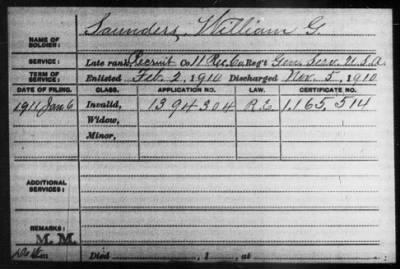 NAME OF SOLDIER: Saunders, William G.
SERVICE: Late rank, Recruit Co. 11 Rec. Co. Reg't Gen. Serv. U.S.A.
TERM OF SERVICE: Enlisted Feb. 2, 1910 Discharged Nov. 5, 1910
DATE OF FILING. CLASS. APPLICATION NO. LAW. CERTIFICATE NO.
1911 Jan. 6 Invalid, 1394304 1,165,514
Widow,
Minor,
ADDITIONAL SERVICES:
REMARKS:
M. M.
Died , 1 , at